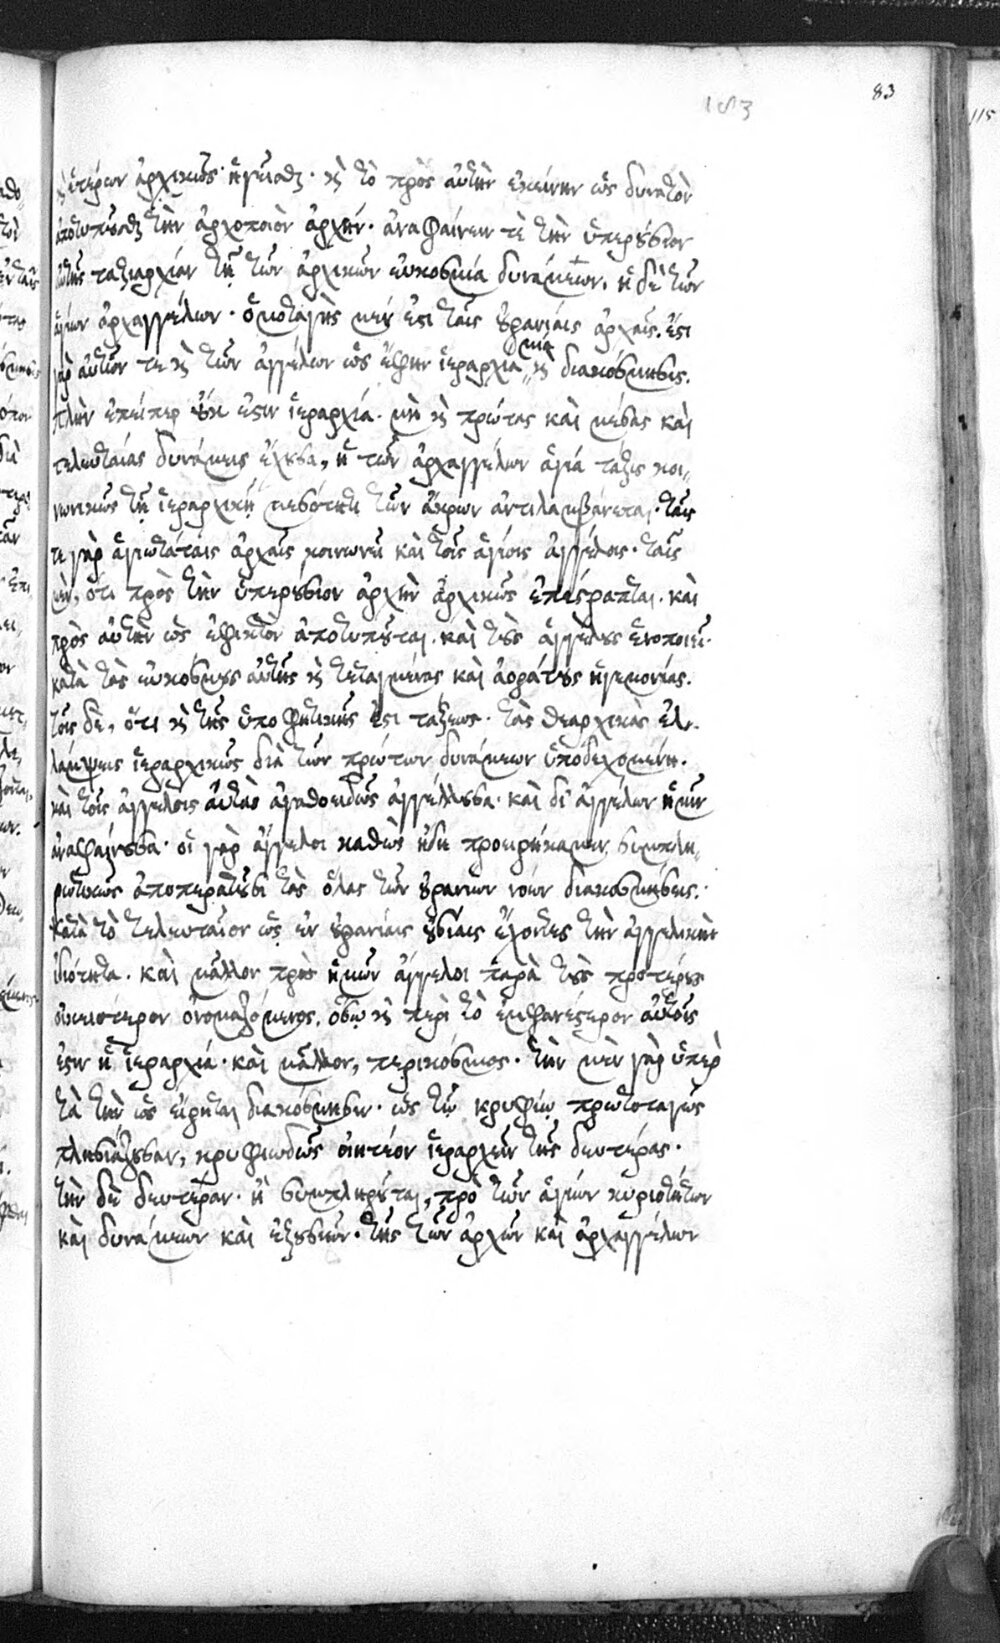 183
83
115
καὶ ἑτέρων ἀρχικῶς ἡγεῖσθαι· καὶ τὸ πρὸς αὐτὴν ἐκείνην ὡς δυνατὸν
ἀποτυποῦσθαι τὴν ἀρχοποιὸν ἀρχήν· ἀναφαίνειν τὲ τὴν ὑπερούσιον
αὐτῆς ταξιαρχίαν τῇ τῶν ἀρχικῶν εὐκοσμία δυνάμεων. ἡ δὲ τῶν
ἁγίων ἀρχαγγέλων· ὁμοταγὴς μέν ἐστι ταῖς οὐρανίαις ἀρχαῖς. ἔστι
γὰρ αὐτῶν τε καὶ τῶν ἀγγέλων ὡς ἔφην ἱεραρχία μία καὶ διακόσμησις.
πλὴν ἐπείπερ οὐκ ἔστιν ἱεραρχία· μὴ καὶ πρώτας καὶ μέσας καὶ
τελευταίας δυνάμεις ἔχουσα, ἡ τῶν ἀρχαγγέλων ἁγία τάξις κοι-
νωνικῶς τῇ ἱεραρχικῇ μεσότητι τῶν ἄκρων ἀντιλαμβάνεται· ταῖς
τε γὰρ ἁγιωτάταις ἀρχαῖς κοινωνεῖ καὶ τοῖς ἁγίοις ἀγγέλοις· ταῖς
μὲν, ὅτι πρὸς τὴν ὑπερούσιον ἀρχὴν ἀρχικῶς ἐπέστραπται. καὶ
πρὸς αὐτὴν ὡς ἐφικτὸν ἀποτυποῦται. καὶ τοὺς ἀγγέλους ἑνοποιεῖ.
κατὰ τὰς εὐκόσμους αὐτῆς καὶ τεταγμένας καὶ ἀοράτους ἡγεμονίας.
τοῖς δὲ, ὅτι καὶ τῆς ὑποφητικῆς ἐστι τάξεως· τὰς θεαρχικὰς ἐλ-
λάμψεις ἱεραρχικῶς διὰ τῶν πρώτων δυνάμεων ὑποδεχομένη.
καὶ τοῖς ἀγγέλοις αὐτὰς ἀγαθοειδῶς ἀγγέλλουσα· καὶ δι' ἀγγέλων ἡμῖν
ἀναφαίνουσα· οἱ γὰρ ἄγγελοι καθὼς ἤδη προειρήκαμεν, συμπλη-
ρωτικῶς ἀποπερατοῦσι τὰς ὅλας τῶν οὐρανίων νόων διακοσμήσεις.
κατὰ τὸ τελευταῖον ὡς ἐν οὐρανίαις οὐσίαις ἔχοντες τὴν ἀγγελικὴν
ἰδιότητα. καὶ μᾶλλον πρὸς ἡμῶν ἄγγελοι παρὰ τοὺς προτέρους
οἰκειότερον ὀνομαζόμενος. ὅσῳ καὶ περὶ τὸ ἐμφανέστερον αὐτοῖς
ἐστιν ἡ ἱεραρχία· καὶ μᾶλλον, περικόσμιος· τὴν μὲν γὰρ ὑπερ
τάτην ὡς εἴρηται διακόσμησιν· ὡς τῷ κρυφίῳ πρωτοταγῶς
πλησιάζουσαν, κρυφιωδῶς οἰητέον ἱεραρχεῖν τῆς δευτέρας.
τὴν δὲ δευτέραν· ἣ συμπληροῦται, πρὸ τῶν ἁγίων κυριοτήτων
καὶ δυνάμεων καὶ ἐξουσιῶν· τῆς τῶν ἀρχῶν καὶ ἀρχαγγέλων